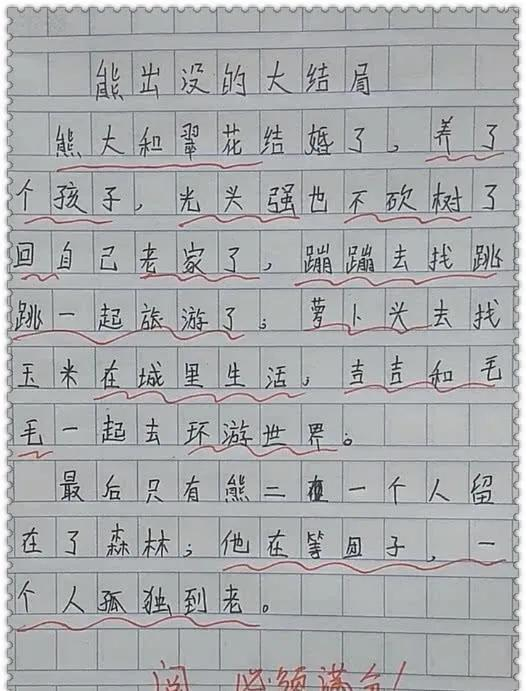 熊出没的大结局
熊大和翠花结婚了，养了
个孩子，光头强也不砍树了
回自己老家了，蹦蹦去找跳
跳一起旅游了；萝卜头去找
玉米在城里生活；吉吉和毛
毛一起去环游世界。
最后只有熊二在一个人留
在了森林；他在等团子，一
个人孤独到老。
阅 必须满分！